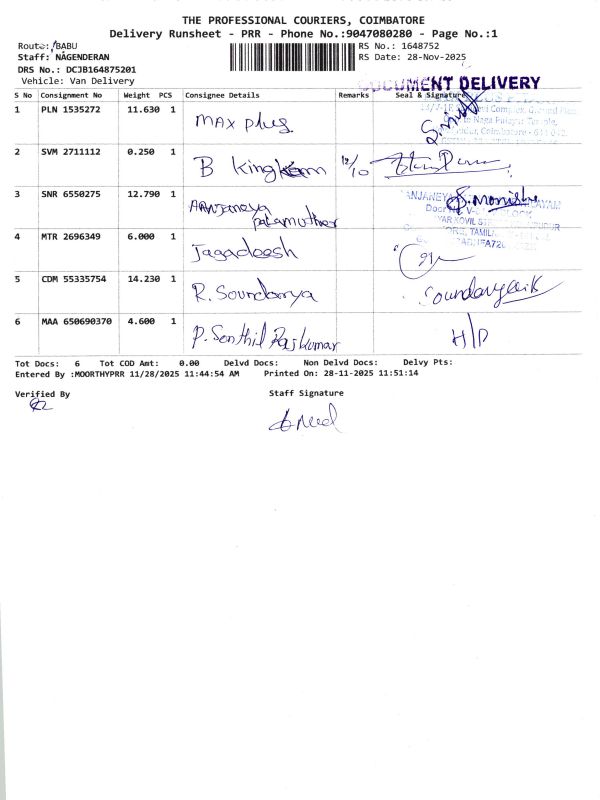 THE PROFESSIONAL COURIERS, COIMBATORE
Delivery Runsheet - PRR - Phone No.:9047080280 - Page No.:1
Route: BABU
Staff: NAGENDERAN
DRS No.: DCJB164875201
Vehicle: Van Delivery
RS No.: 1648752
RS Date: 28-Nov-2025
DOCUMENT DELIVERY
S No Consignment No Weight PCS Consignee Details Remarks Seal & Signature
1 PLN 1535272 11.630 1 max plus
2 SVM 2711112 0.250 1 B King 12/10
3 SNR 6550275 12.790 1 S. monisha
4 MTR 2696349 6.000 1 Jagadeesh
5 CDM 55335754 14.230 1 R. Soundarya
6 MAA 650690370 4.600 1 P. Senthil Rajkumar H/D
Tot Docs: 6 Tot COD Amt: 0.00 Delvd Docs: Non Delvd Docs: Delvy Pts:
Entered By :MOORTHYPRR 11/28/2025 11:44:54 AM Printed On: 28-11-2025 11:51:14
Verified By Staff Signature